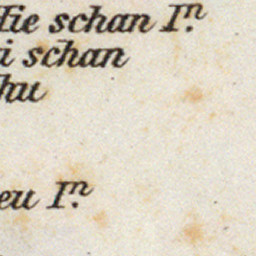 schan Iⁿ.
schan
hu
eu Iⁿ.